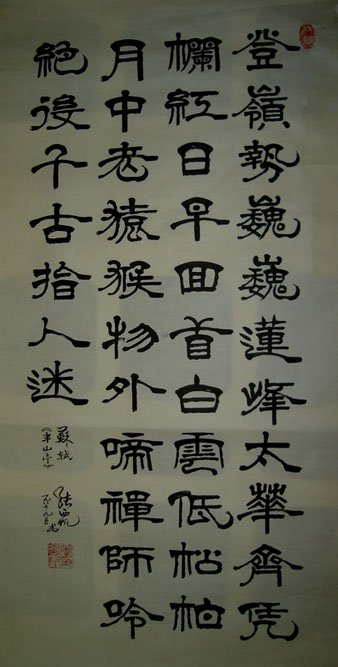 登嶺勢巍巍蓮峰太華齊凭
欄紅日早回首白雲低松柏
月中老猿猴物外啼禪師吟
絕後千古指人迷
蘇軾
《半山亭》